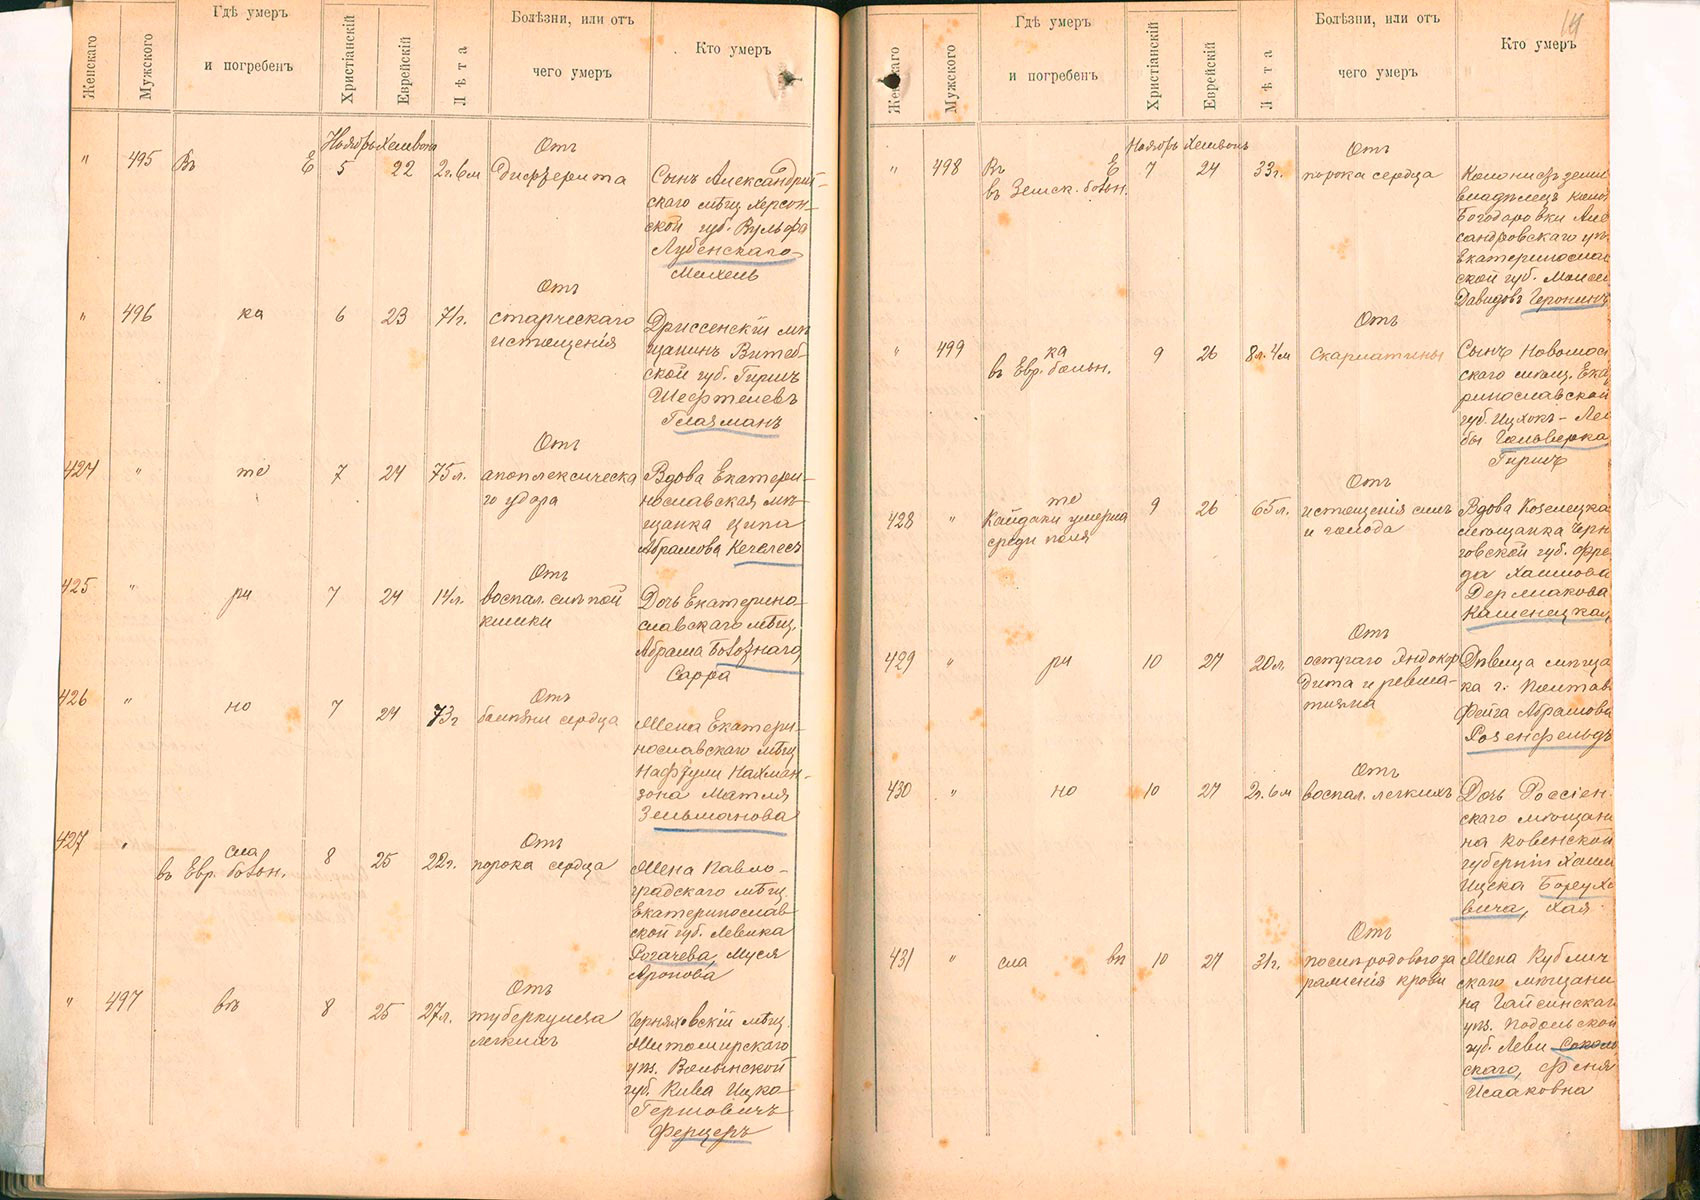 Женскаго
Мужского
Гдѣ умеръ
и погребенъ
Христіанскій
Еврейскій
Лѣта
Болѣзни, или отъ
чего умеръ
Кто умеръ
Ноябрь Хешвонъ
"
495
Въ Е
5
22
2г. 6м
Отъ
Дифтерита
Сынъ Александрій-
скаго мѣщ. Херсон-
ской губ. Вульфа
Лубенскаго
Михель
"
496
ка
6
23
71г.
Отъ
старческаго
истощенія
Дриссенскій мѣ-
щанинъ Витеб-
ской губ. Гиршъ
Шефтелевъ
Глазманъ
424
"
те
7
24
75л.
Отъ
апоплексическа
го удара
Вдова Екатери-
нославская мѣ-
щанка Ципа
Абрамова Кечелесъ
425
"
ри
7
24
14л.
Отъ
воспал. слѣпой
кишки
Дочь Екатерино-
славскаго мѣщ.
Абрама
Сарра
426
"
но
7
24
73г
Отъ
болѣзни сердца
Жена Екатери-
нославскаго мѣщ
Нафтули Нахман-
зона Матля
Зельманова
427
"
сла
въ Евр. больн.
8
25
22г.
Отъ
порока сердца
Жена Павло-
градскаго мѣщ.
Екатеринослав
ской губ. Левика
Рогачева, Муся
Аронова
"
497
вѣ
8
25
27л.
Отъ
туберкулеза
легкихъ
Черняховскій мѣщ.
Житомирскаго
уѣз. Волынской
губ. Кива Ицко-
Гершовичъ
Ферцеръ
14
Женскаго
Мужского
Гдѣ умеръ
и погребенъ
Христіанскій
Еврейскій
Лѣта
Болѣзни, или отъ
чего умеръ
Кто умеръ
Ноябрь Хешвонъ
"
498
Въ Е
въ Земск. больн.
7
24
33г.
Отъ
порока сердца
Колонистъ земле
владѣлецъ коло
Богодаровки Але
сандровскаго уѣ
Екатеринослав
ской губ. Моисе
Давидовъ Геронинъ
"
499
ка
въ Евр. больн.
9
26
8л. 4м
Отъ
Скарлатины
Сынъ Новомос
скаго мѣщ. Ека
ринославской
губ. Ицхокъ-Лей
бы
Гиршъ
428
"
те
Кайдаки умерла
среди поля
9
26
65л.
Отъ
истощенія силъ
и голода
Вдова Козелецка
мѣщанка Черн
говской губ. Фре
да Хаимова
Каменецкая
429
"
ри
10
27
20л
Отъ
остраго Эндокар
дита и ревма-
тизма
Дѣвица мѣща
ка г. Полтав
Фейга Абрамова
Розенфельдъ
430
"
но
10
27
2г. 6м
Отъ
воспал. легкихъ
Дочь Россіен
скаго мѣщани
на Ковенской
губерніи Хаим
Ицека Борухо
вича, Хая
431
"
сла вѣ
10
27
31г.
Отъ
послѣродового за
раженія крови
Жена Кублич
скаго мѣщани
на Гайсинскаг
уѣз. Подольской
губ. Леви Соколо
скаго, Феня
Исааковна